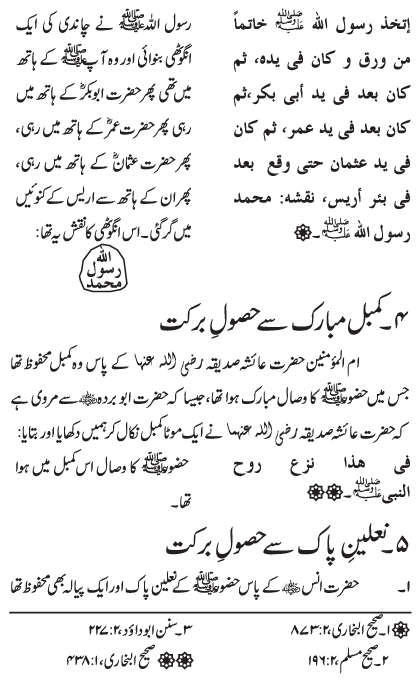 إتخذ رسول الله ﷺ خاتماً
من ورق و كان فى يده، ثم
كان بعد فى يد أبى بكر، ثم
كان بعد فى يد عمر، ثم كان
فى يد عثمان حتى وقع بعد
فى بئر أريس، نقشه: محمد
رسول الله ﷺ۔
رسول اللہ ﷺ نے چاندی کی ایک
انگوٹھی بنوائی اور وہ آپ ﷺ کے ہاتھ
میں تھی پھر حضرت ابوبکرؓ کے ہاتھ میں
رہی پھر حضرت عمرؓ کے ہاتھ میں رہی،
پھر حضرت عثمانؓ کے ہاتھ میں رہی،
پھر ان کے ہاتھ سے اریس کے کنوئیں
میں گر گئی۔ اس انگوٹھی کا نقش یہ تھا:
الله
رسول
محمد
۴۔ کمبل مبارک سے حصولِ برکت
ام المؤمنین حضرت عائشہ صدیقہ رضی اللہ عنہا کے پاس وہ کمبل محفوظ تھا
جس میں حضور ﷺ کا وصال مبارک ہوا تھا، جیسا کہ حضرت ابو بردہ رضی اللہ عنہ سے مروی ہے
کہ حضرت عائشہ صدیقہ رضی اللہ عنہا نے ایک موٹا کمبل نکال کر ہمیں دکھایا اور بتایا:
فى هذا نزع روح
النبى ﷺ۔
حضور ﷺ کا وصال اس کمبل میں ہوا
تھا۔
۵۔ نعلینِ پاک سے حصولِ برکت
۱۔ حضرت انس رضی اللہ عنہ کے پاس حضور ﷺ کے نعلین پاک اور ایک پیالہ بھی محفوظ تھا
۱۔ صحیح البخاری، ۲: ۸۷۳
۲۔ صحیح مسلم، ۲: ۱۹۶
۳۔ سنن ابو داؤد، ۲: ۲۲۷
صحیح البخاری، ۱: ۴۳۸